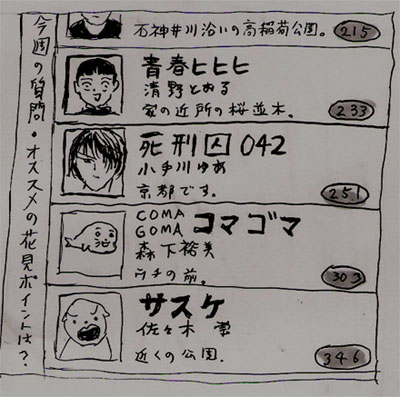 今週の質問・オススメの花見ポイントは?
石神井川沿いの高稲荷公園。
215
青春ヒヒヒ
清野とおる
家の近所の桜並木。
233
死刑囚042
小手川ゆあ
京都です。
251
COMA
GOMA コマゴマ
森下裕美
ウチの前。
303
サスケ
佐々木
近くの公園。
346